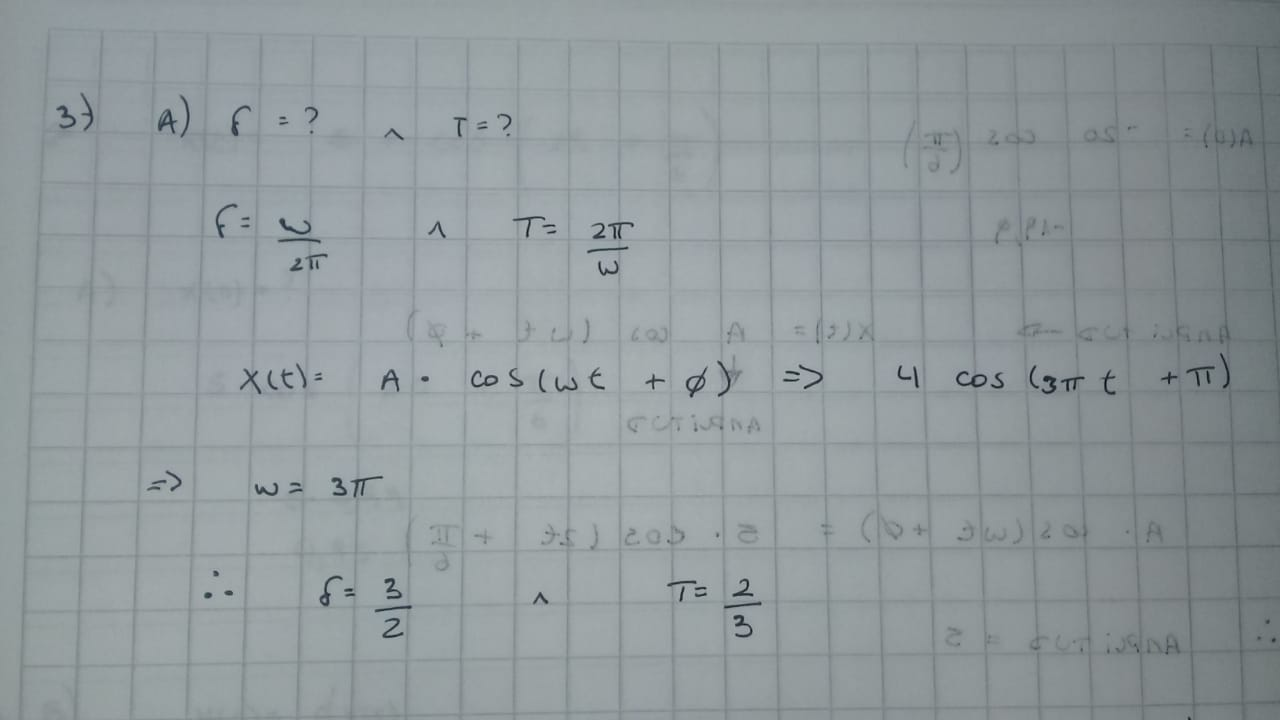 3) A) f = ? ∧ T = ?
f = w/2π ∧ T = 2π/w
X(t) = A · cos(wt + φ) => 4 cos(3π t + π)
=> w = 3π
∴ f = 3/2 ∧ T = 2/3